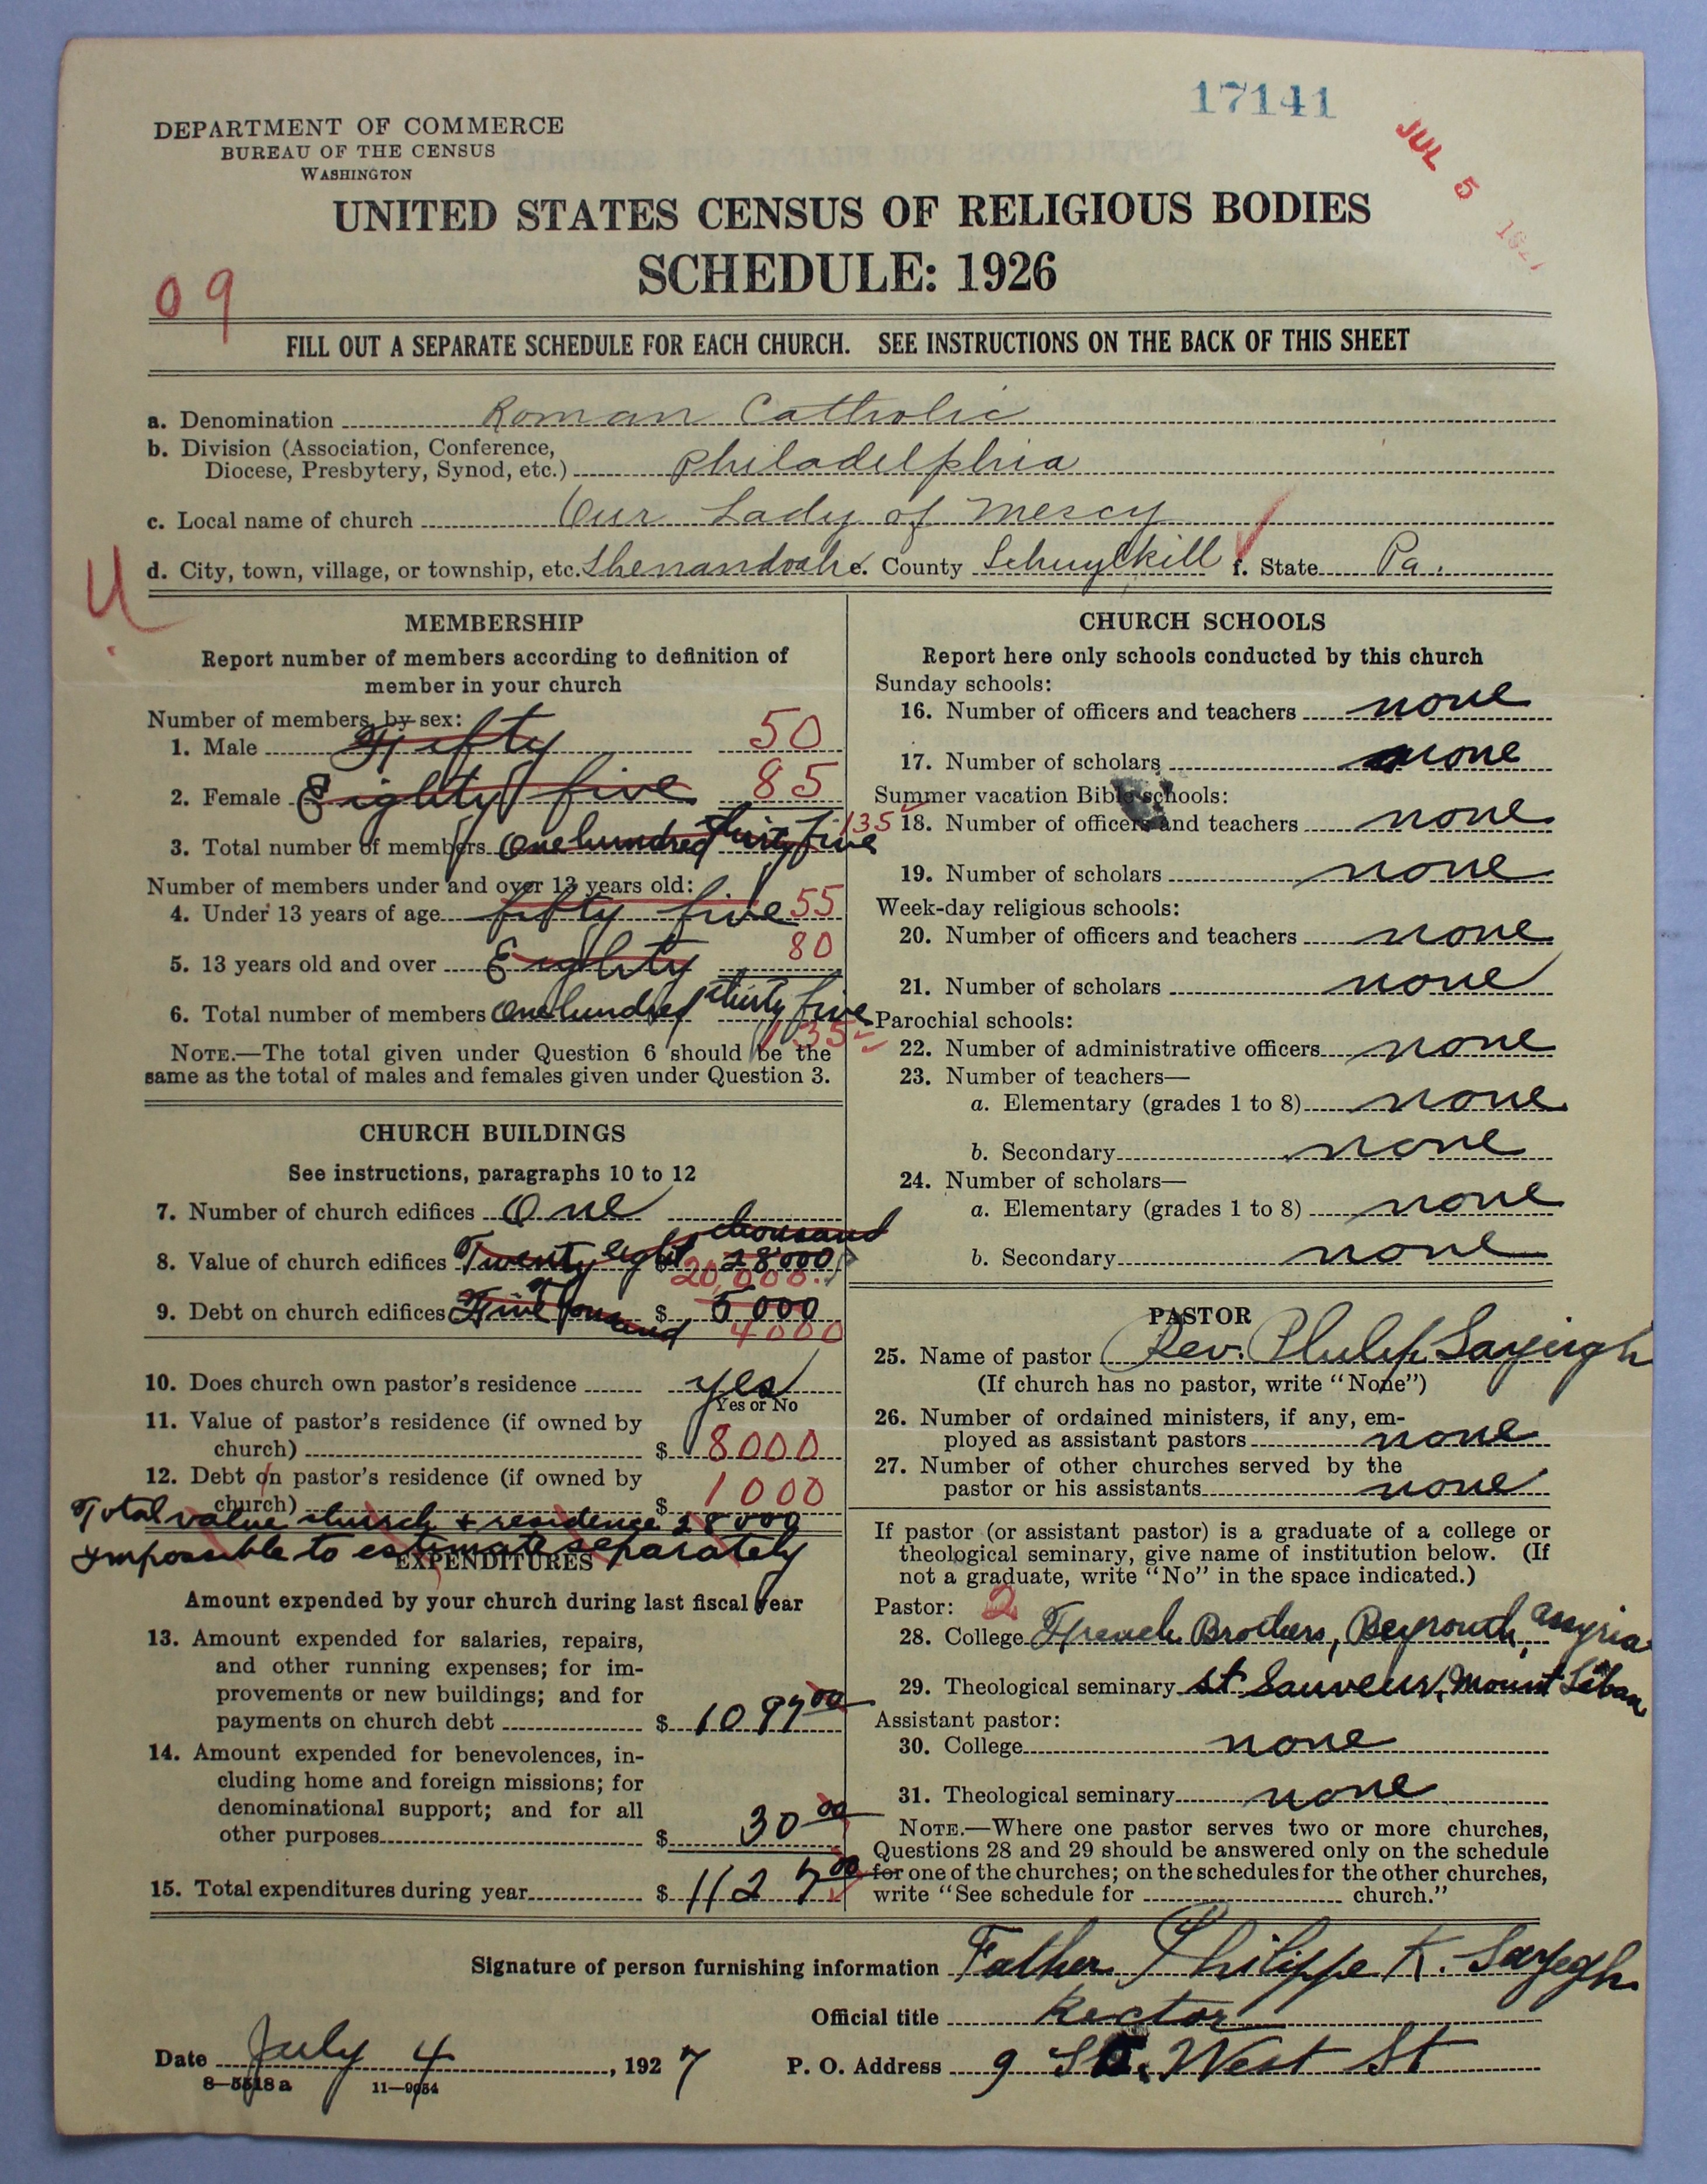 17141
JUL 5 192
DEPARTMENT OF COMMERCE
BUREAU OF THE CENSUS
WASHINGTON
UNITED STATES CENSUS OF RELIGIOUS BODIES
SCHEDULE: 1926
09
FILL OUT A SEPARATE SCHEDULE FOR EACH CHURCH. SEE INSTRUCTIONS ON THE BACK OF THIS SHEET
a. Denomination Roman Catholic
b. Division (Association, Conference,
Diocese, Presbytery, Synod, etc.) Philadelphia
c. Local name of church Our Lady of Mercy
d. City, town, village, or township, etc. Shenandoah e. County Schuylkill f. State Pa.
U
MEMBERSHIP
Report number of members according to definition of
member in your church
Number of members, by sex:
1. Male Fifty 50
2. Female Eighty five 85
3. Total number of members One hundred thirty five 135
Number of members under and over 13 years old:
4. Under 13 years of age fifty five 55
5. 13 years old and over Eighty 80
6. Total number of members One hundred thirty five 135
NOTE.—The total given under Question 6 should be the
same as the total of males and females given under Question 3.
CHURCH BUILDINGS
See instructions, paragraphs 10 to 12
7. Number of church edifices One
8. Value of church edifices Twenty eight thousand $ 28000
20,000
9. Debt on church edifices Five Thousand $ 5000
4000
10. Does church own pastor's residence yes
Yes or No
11. Value of pastor's residence (if owned by
church) $ 8000
12. Debt on pastor's residence (if owned by
church) $ 1000
Total value church & residence 28000
Impossible to estimate separately
EXPENDITURES
Amount expended by your church during last fiscal year
13. Amount expended for salaries, repairs,
and other running expenses; for im-
provements or new buildings; and for
payments on church debt $ 1097 00
14. Amount expended for benevolences, in-
cluding home and foreign missions; for
denominational support; and for all
other purposes $ 30 00
15. Total expenditures during year $ 1127 00
CHURCH SCHOOLS
Report here only schools conducted by this church
Sunday schools:
16. Number of officers and teachers none
17. Number of scholars none
Summer vacation Bible schools:
18. Number of officers and teachers none
19. Number of scholars none
Week-day religious schools:
20. Number of officers and teachers none
21. Number of scholars none
Parochial schools:
22. Number of administrative officers none
23. Number of teachers—
a. Elementary (grades 1 to 8) none
b. Secondary none
24. Number of scholars—
a. Elementary (grades 1 to 8) none
b. Secondary none
PASTOR
25. Name of pastor Rev. Philip Sayeigh
(If church has no pastor, write "None")
26. Number of ordained ministers, if any, em-
ployed as assistant pastors none
27. Number of other churches served by the
pastor or his assistants none
If pastor (or assistant pastor) is a graduate of a college or
theological seminary, give name of institution below. (If
not a graduate, write "No" in the space indicated.)
Pastor: 2
28. College French Brothers, Beyrouth, assyria
29. Theological seminary St Sauveur, Mount Liban
Assistant pastor:
30. College none
31. Theological seminary none
NOTE.—Where one pastor serves two or more churches,
Questions 28 and 29 should be answered only on the schedule
for one of the churches; on the schedules for the other churches,
write "See schedule for church."
Signature of person furnishing information Father Philippe K. Sayegh
Official title Rector
Date July 4, 1927 P. O. Address 9 So. West St
8—5518a 11—9054